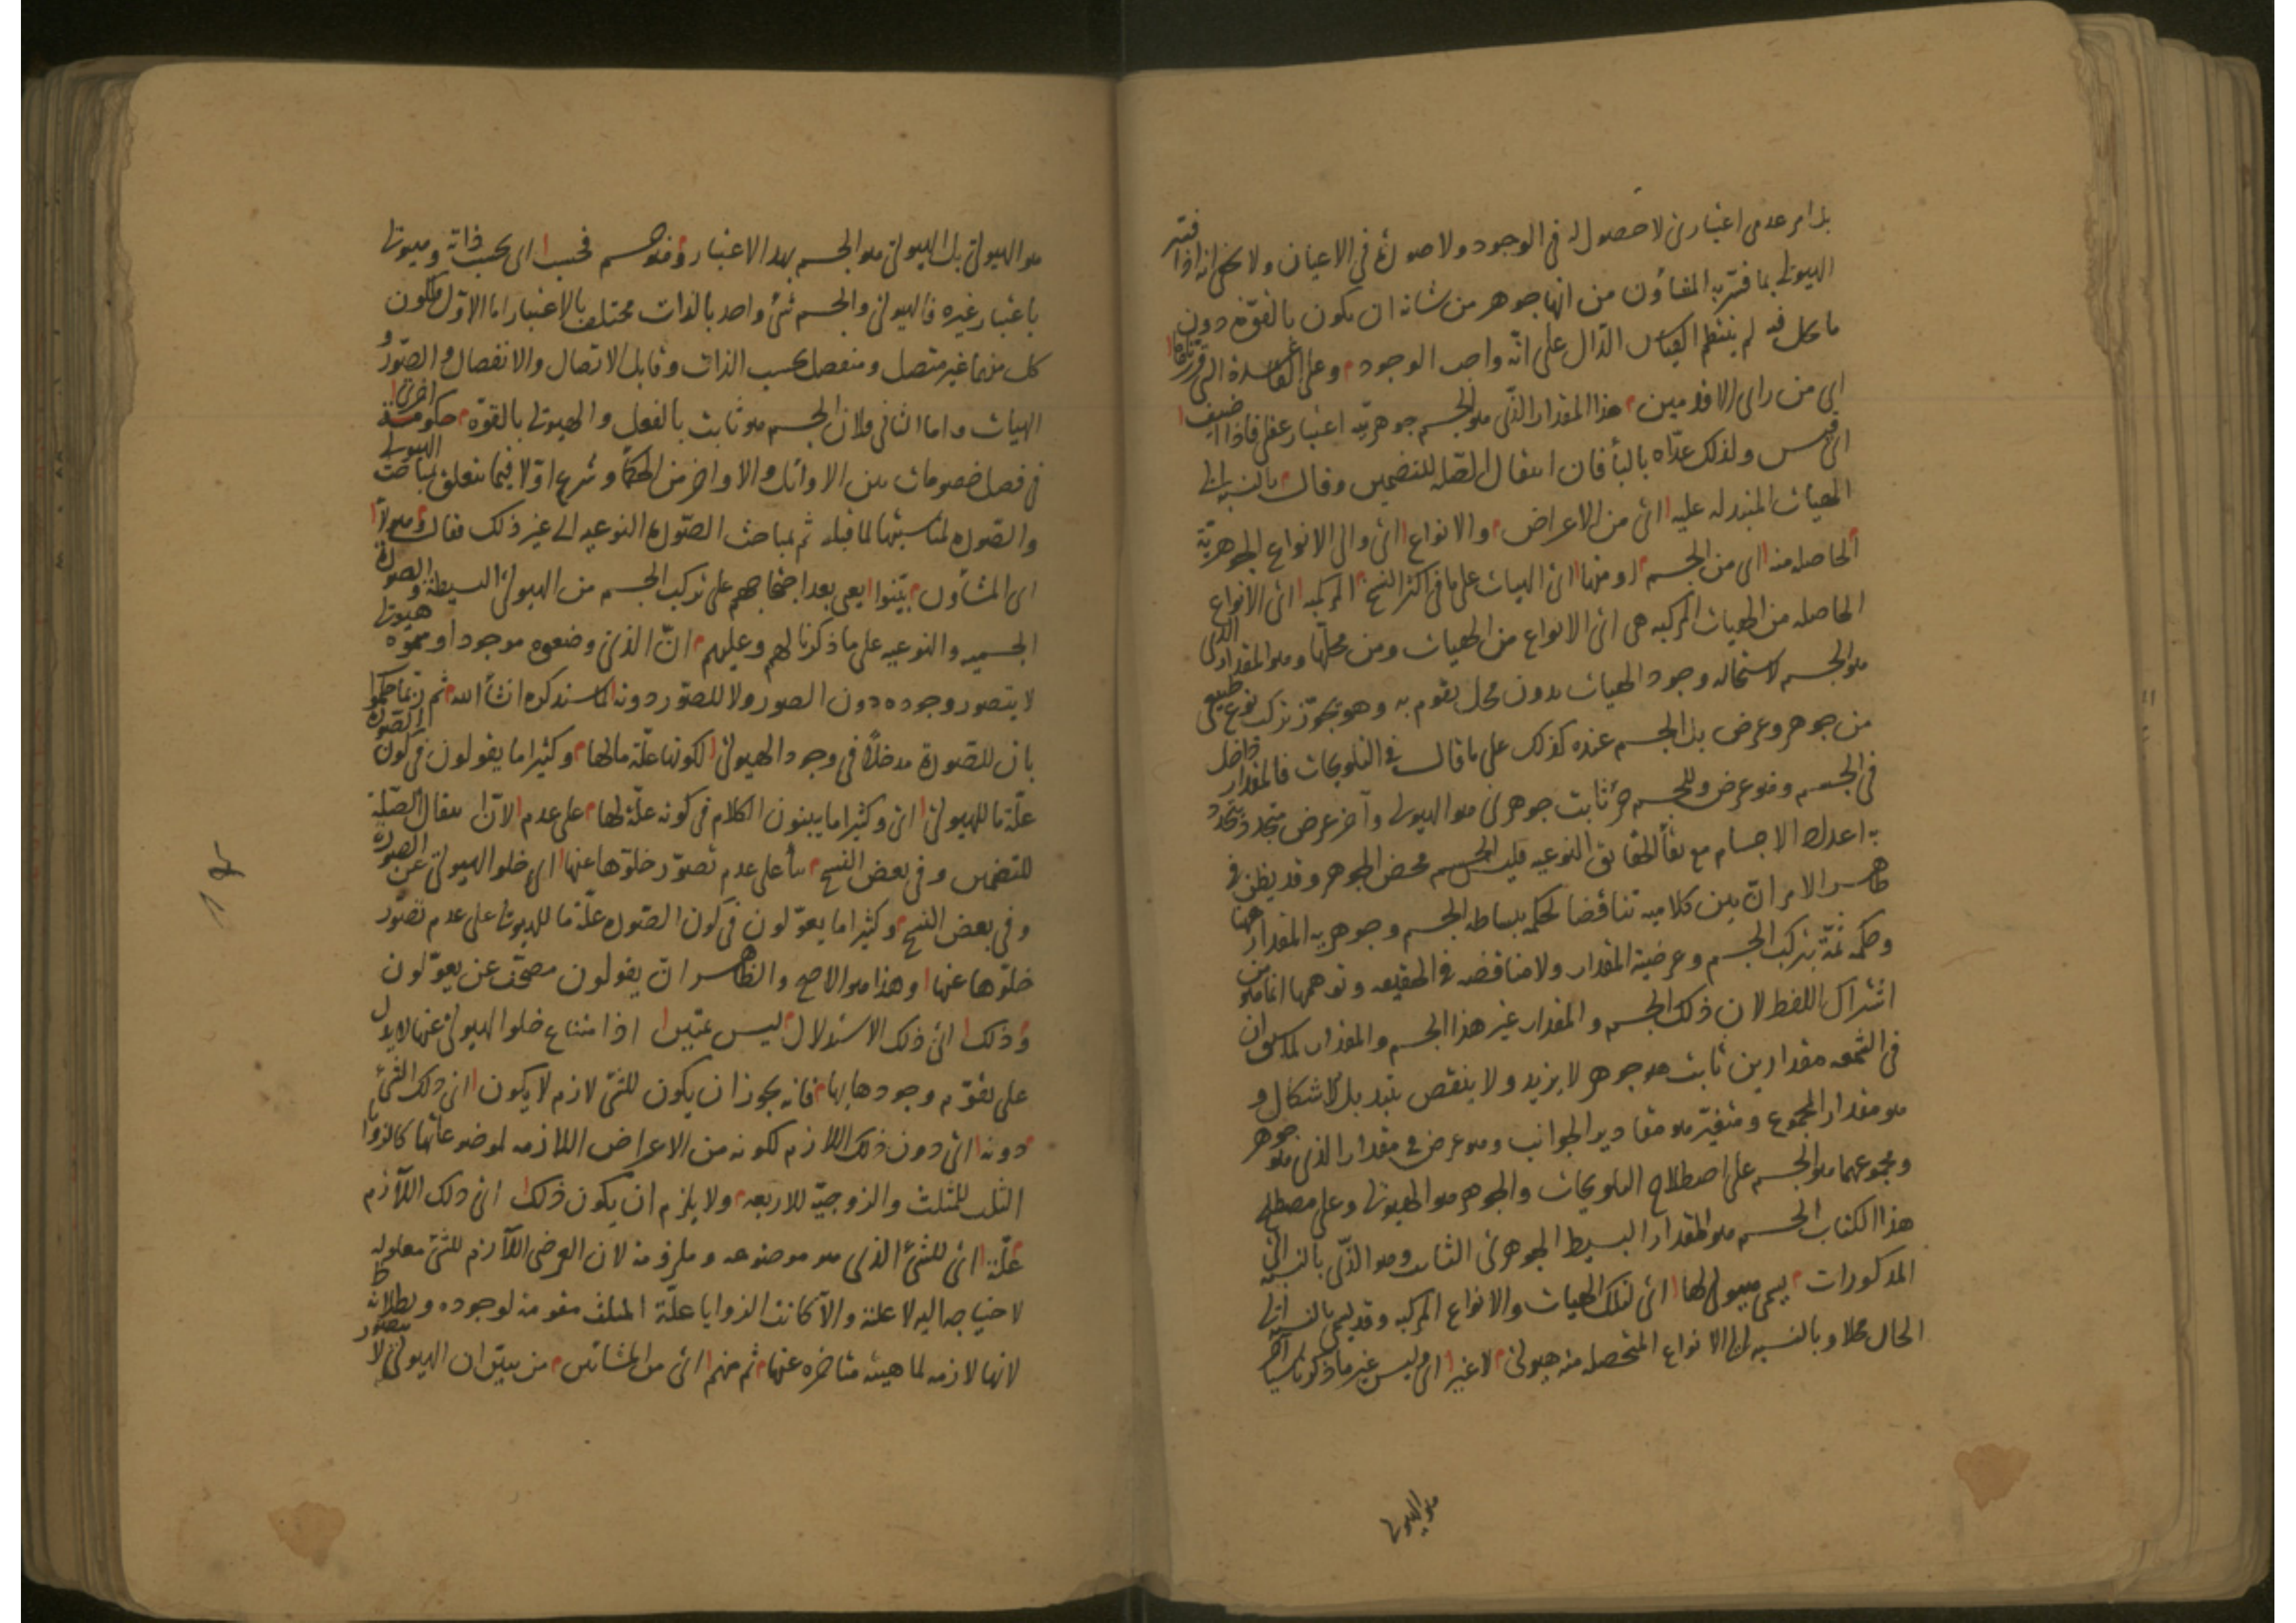 بل امر عدمى اعتبارى لا حصول له فى الوجود ولا صورة فى الاعيان ولا يخفى انه اذا فسّر
الهيولى بما فسّر به المشاؤن من انها جوهر من شانه ان يكون بالقوّة دون
ما يحل فيه لم ينتظم القياس الدّال على انّه واجب الوجود وعلى القاعدة التى قرّرناها
اى من راى الاقدمين هذا المقدار الذّى هو الجسم جوهريّته اعتبار عقلى فاذا اضيف
اى قيس ولذلك عدّاه بالباء فان انتقال الصّله للتضمين وقال بالنسبة الى
الهيئات المتبدله عليه اى من الاعراض والانواع اى والى الانواع الجوهريّة
الحاصله منه اى من الجسم ومنها اى الهيات على ما فى اكثر النسخ المركبه اى الانواع
الحاصله من الهيات المركبه هى اى الانواع من الهيات ومن محلّها وهو المقدار الذى
هو الجسم لاستحاله وجود الهيات بدون محل يقوم به وهو يجوّز تركب نوع طبيعى
من جوهر وعرض بل الجسم عنده كذلك على ما قال فى التلويحات فالمقدار داخل
فى الجسم وهو عرض وللجسم جزء ثابت جوهرى هو الهيولى وآخر عرض متجدد يتجدد
به اعداد الاجسام مع بقاء الحقائق النوعيه فليس الجسم محض الجوهر وقد يظن فى
ظاهر الامر انّ بين كلاميه تناقضا لحكمه ببساطه الجسم وجوهريه المقدار ههنا
وحكمه ثمّة بتركب الجسم وعرضية المقدار ولا مناقضه فى الحقيقه وتوهمها انما هو من
اشتراك اللفظ لان ذلك الجسم والمقدار غير هذا الجسم والمقدار لما سبق ان
فى الشمعه مقدارين ثابت هو جوهر لا يزيد ولا ينقص بتبدل الاشكال و
هو مقدار المجموع ومتغيّر هو مقادير الجوانب وهو عرض فى مقدار الذى هو جوهر
ومجموعهما هو الجسم على اصطلاح التلويحات والجوهر هو الهيولى وعلى مصطلح
هذا الكتاب الجسم هو المقدار البسيط الجوهرى الثابت وهو الذّى بالنسبة الى
المذكورات يسمى هيولى لها اى لتلك الهيات والانواع المركبه وقد يسمى بالنسبة الى
الحال محلا وبالنسبه الى الانواع المتحصله منه هيولى لا غير اى وليس غير ما ذكرنا شيئا آخر
هو الهيولى
هو الهيولى بل الهيولى هو الجسم بهذا الاعتبار وهو جسم فحسب اى بحسب ذاته وهيولى
باعتبار غيره فالهيولى والجسم شئ واحد بالذات مختلف بالاعتبار اما الاوّل فلكون
كل منهما غير متصل ومنفصل بحسب الذات وقابل الاتصال والانفصال والصّور و
الهيات واما الثانى فلان الجسم هو ثابت بالفعل والهيولى بالقوّه حكومة اخرى
فى فصل خصومات بين الاوائل والاواخر من الحكماء وشرع اوّلا فيما يتعلق بمباحث الهيولى
والصّوره لمناسبتها لما قبله ثم بمباحث الصّورة النوعيه الى غير ذلك فقال وهؤلاء
اى المشاؤن بيّنوا يعنى بعد احتجاجهم على تركب الجسم من الهيولى البسيطة والصورة
الجسميه والنوعيه على ما ذكرنا لهم وعليهم انّ الذى وضعوه موجودا وسموّه هيولى
لا يتصور وجوده دون الصور ولا للصّور دونه لما سنذكره ان شاء الله ثم ربّما حكموا
بان للصّورة مدخلاً فى وجود الهيولى لكونها علّة ما لها وكثيرا ما يقولون فى كون الصّورة
علّة ما للهيولى اى وكثيرا ما يبنون الكلام فى كونه علّة لها على عدم الّا ان انتقال الصّلة
للتضمين وفى بعض النسخ بناء على عدم تصوّر خلوّها عنها اى خلو الهيولى عن الصورة
وفى بعض النسخ وكثيرا ما يعوّلون فى كون الصّوره علّة ما للهيولى على عدم تصوّر
خلوّها عنها وهذا هو الاصح والظاهر ان يقولون مصحّف عن يعوّلون
وذلك اى ذلك الاستدلال ليس بمتين اذ امتناع خلو الهيولى عنها لا يدل
على تقوّم وجودها بها فانه يجوز ان يكون للشئ لازم لا يكون اى ذلك الشئ
دونه اى دون ذلك اللازم لكونه من الاعراض اللازمه لموضوعاتها كالزوايا
الثلث للمثلث والزوجيّة للاربعه ولا يلزم ان يكون ذلك اى ذلك اللّازم
علّة اى للشئ الذى هو موضوعه وملزومه لان العرض اللّازم للشئ معلوله
لاحتياجه اليه لا علته والّا كانت الزوايا علّة المثلث مقومة لوجوده وبطلانه ظ
لانها لازمه لماهيته متاخره عنها ثم منهم اى من المشائين من يبيّن ان الهيولى لا يتصور